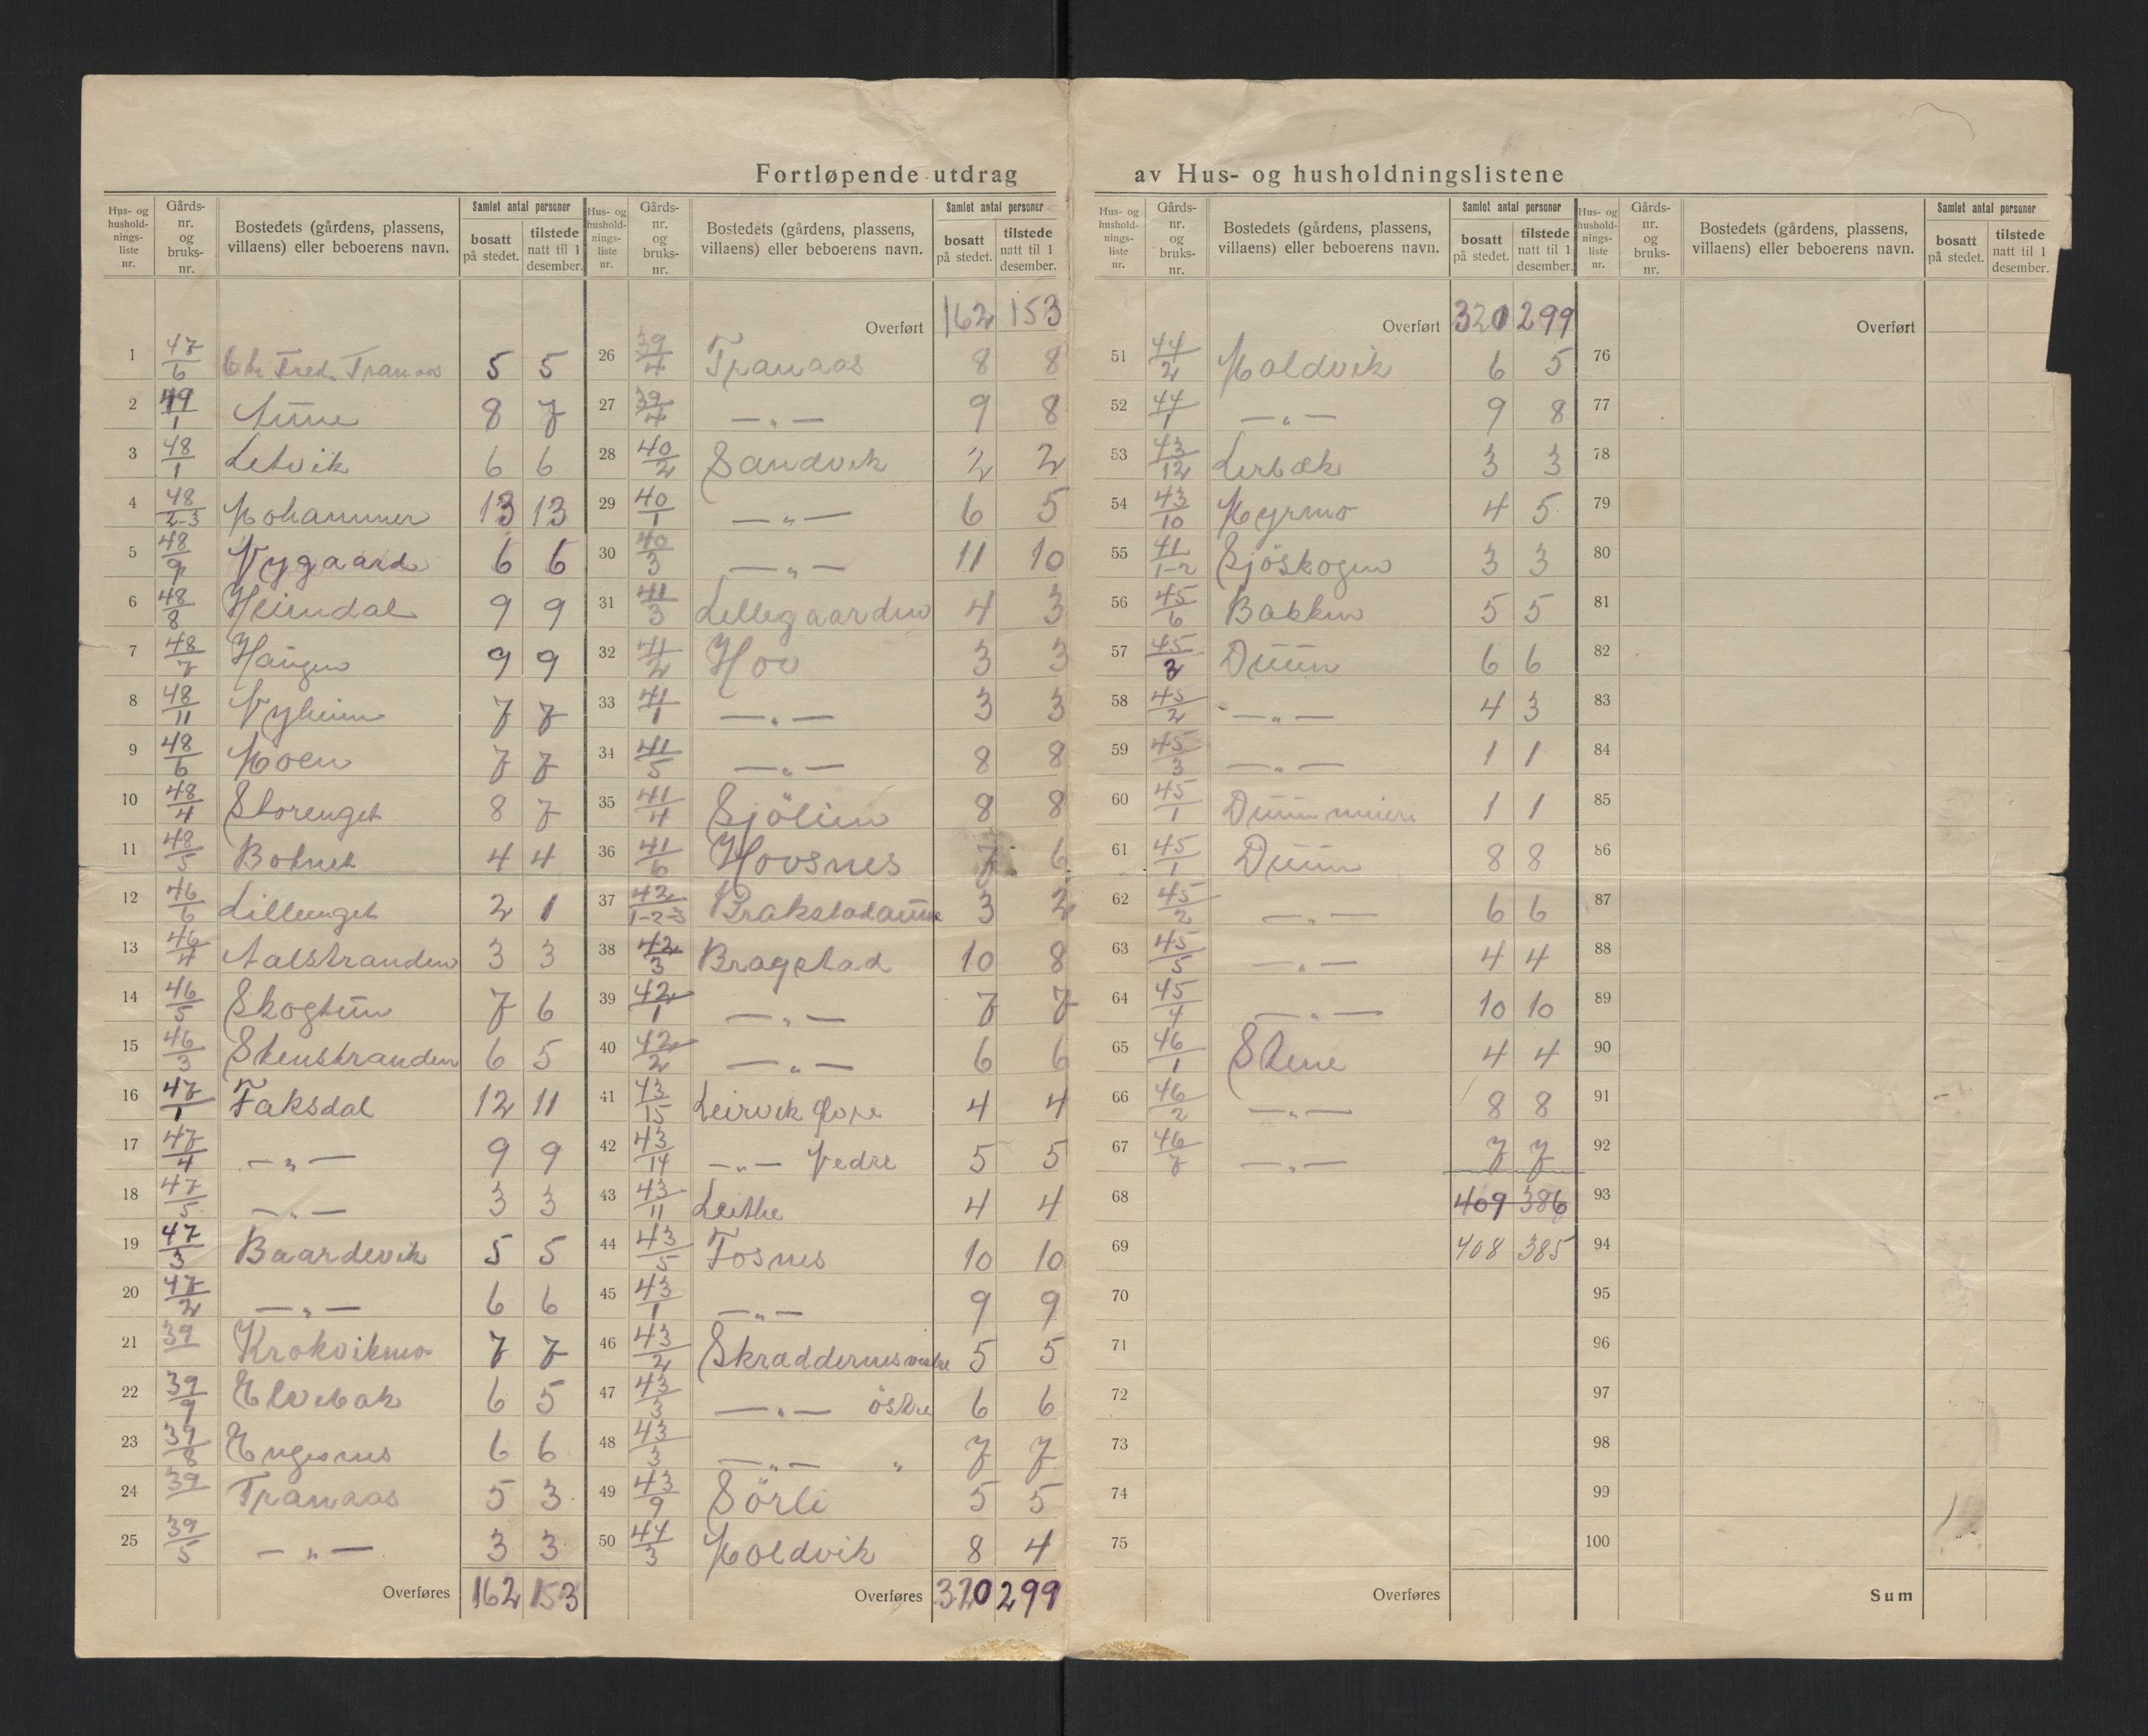 Fortløpende utdrag av Hus- og husholdningslistene
Hus- og husholdningsliste nr. | Gårds-nr. og bruks-nr. | Bostedets (gårdens, plassens, villaens) eller beboerens navn. | Samlet antal personer | bosatt på stedet. | tilstede natt til 1 desember.
1 47/6 Fred. Tranaas 5 5
2 49/1 Aune 8 7
3 48/1 Letvik 6 6
4 48/2-3 Mohammer 13 13
5 48/9 Nygaard 6 6
6 48/8 Heimdal 9 9
7 48/7 Haugen 9 9
8 48/11 Nyheim 7 7
9 48/6 Moen 7 7
10 48/4 Storenget 8 7
11 48/5 Botnet 4 4
12 46/6 Lillenget 2 1
13 46/4 Aalstranden 3 3
14 46/5 Skogtun 7 6
15 46/3 Stenstranden 6 5
16 47/1 Faksdal 12 11
17 47/4 —"— 9 9
18 47/5 —"— 3 3
19 47/3 Baardevik 5 5
20 47/2 —"— 6 6
21 39 Krokvikmo 7 7
22 39/9 Elvebak 6 5
23 39/8 Engesnes 6 6
24 39 Tranaas 5 3
25 39/5 —"— 3 3
Overføres 162 153
Hus- og husholdningsliste nr. | Gårds-nr. og bruks-nr. | Bostedets (gårdens, plassens, villaens) eller beboerens navn. | Samlet antal personer | bosatt på stedet. | tilstede natt til 1 desember.
Overført 162 153
26 39/4 Tranaas 8 8
27 39/4 —"— 9 8
28 40/2 Sandvik 2 2
29 40/1 —"— 6 5
30 40/3 —"— 11 10
31 41/3 Lillegaarden 4 3
32 41/2 Hov 3 3
33 41/1 —"— 3 3
34 41/5 —"— 8 8
35 41/4 Sjölien 8 8
36 41/6 Hovsnes 7 6
37 42/1-2-3 Brakstadaune 3 2
38 42/3 Bragstad 10 8
39 42/1 —"— 7 7
40 42/2 —"— 6 6
41 43/15 Leirvik Övre 4 4
42 43/14 —"— Nedre 5 5
43 43/11 Leithe 4 4
44 43/5 Fosnes 10 10
45 43/1 —"— 9 9
46 43/2 Skræddernes vestre 5 5
47 43/3 —"— östre 6 6
48 43/3 —"— " 7 7
49 43/9 Sörli 5 5
50 44/3 Moldvik 8 4
Overføres 320 299
Hus- og husholdningsliste nr. | Gårds-nr. og bruks-nr. | Bostedets (gårdens, plassens, villaens) eller beboerens navn. | Samlet antal personer | bosatt på stedet. | tilstede natt til 1 desember.
Overført 320 299
51 44/2 Moldvik 6 5
52 44/1 —"— 9 8
53 43/12 Lerbæk 3 3
54 43/10 Myrmo 4 5
55 41/1-2 Sjöskogen 3 3
56 45/6 Bakken 5 5
57 45/2 Duun 6 6
58 45/2 —"— 4 3
59 45/3 —"— 1 1
60 45/1 Duun meieri 1 1
61 45/1 Duun 8 8
62 45/2 —"— 6 6
63 45/5 —"— 4 4
64 45/4 —"— 10 10
65 46/1 Stene 4 4
66 46/2 —"— 8 8
67 46/7 —"— 7 7
68 409 386
69 408 385
70
71
72
73
74
75
Overføres
Hus- og husholdningsliste nr. | Gårds-nr. og bruks-nr. | Bostedets (gårdens, plassens, villaens) eller beboerens navn. | Samlet antal personer | bosatt på stedet. | tilstede natt til 1 desember.
Overført
76
77
78
79
80
81
82
83
84
85
86
87
88
89
90
91
92
93
94
95
96
97
98
99
100
Sum